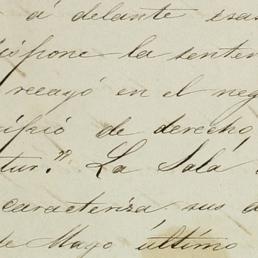 á delante esa
dispone la senten
recayó en el neg
de derecho,
tur." La Sala
caracteriza sus a
de Mayo último